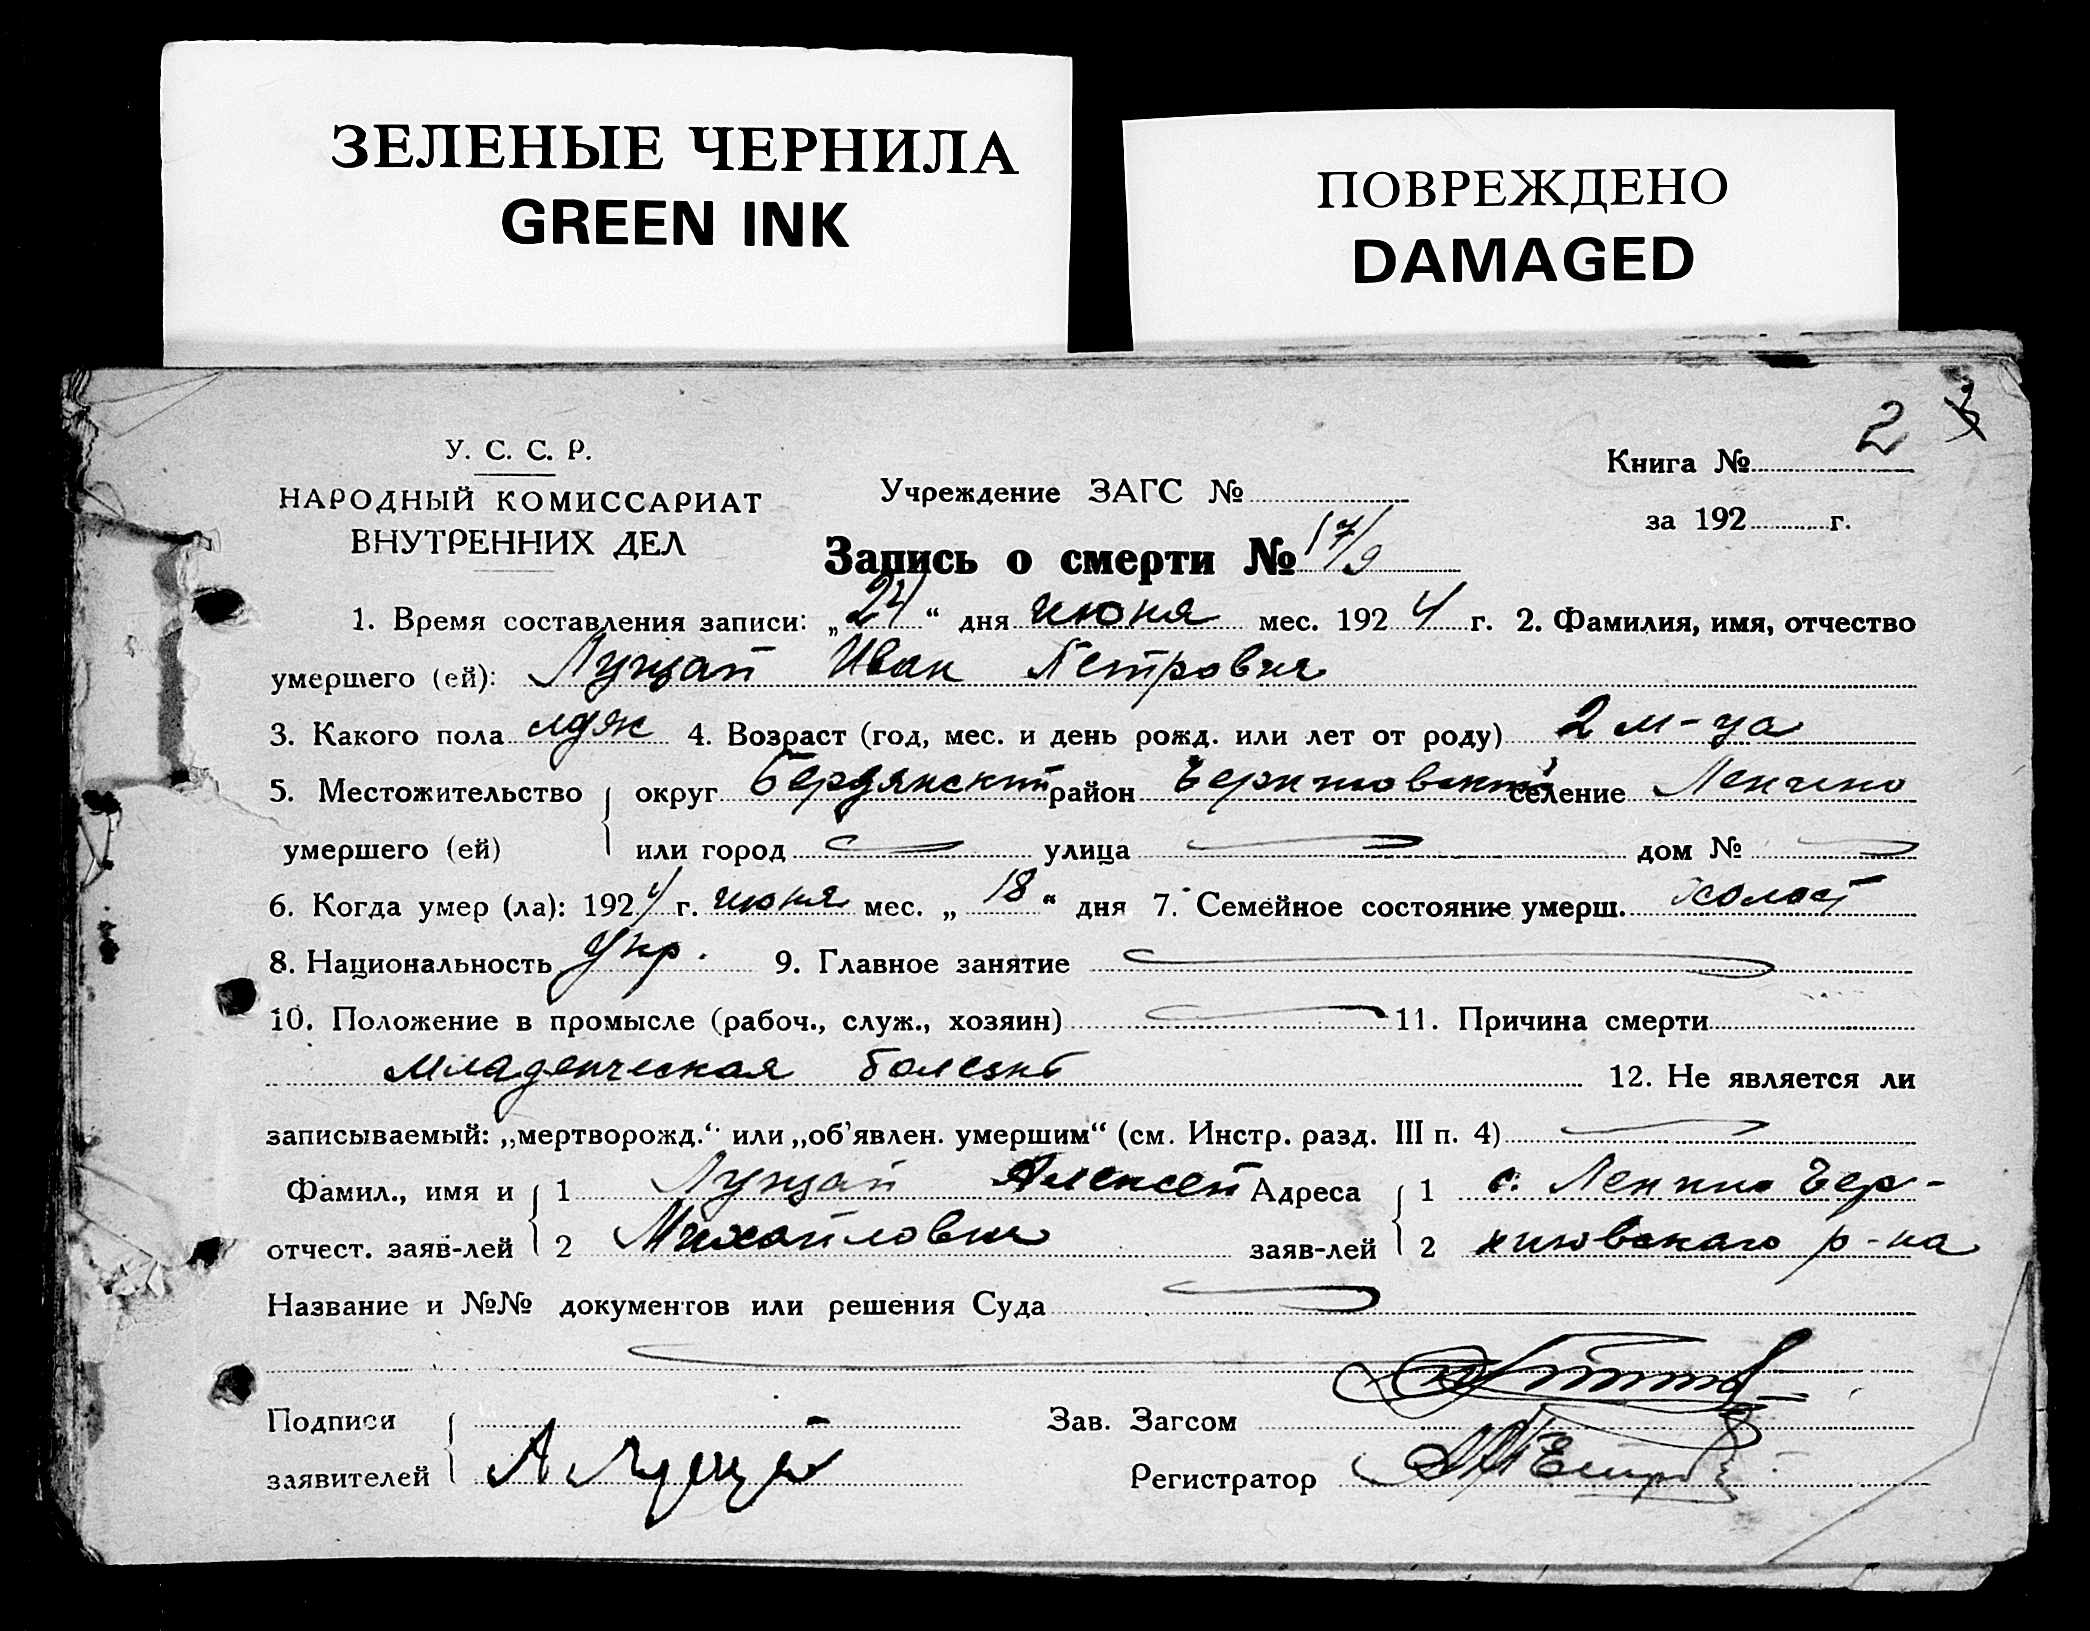 ЗЕЛЕНЫЕ ЧЕРНИЛА
GREEN INK
ПОВРЕЖДЕНО
DAMAGED
2
У. С. С. Р.
НАРОДНЫЙ КОМИССАРИАТ
ВНУТРЕННИХ ДЕЛ
Учреждение ЗАГС №
Книга №
за 192 г.
Запись о смерти № 17/9
1. Время составления записи: „24“ дня июня мес. 1924 г. 2. Фамилия, имя, отчество
умершего (ей): Луцай Иван Петрович
3. Какого пола муж 4. Возраст (год, мес. и день рожд. или лет от роду) 2 м-ца
5. Местожительство округ Бердянский район Черниговский селение Ленино
умершего (ей) или город улица дом №
6. Когда умер (ла): 1924 г. июня мес. „18“ дня 7. Семейное состояние умерш. холост
8. Национальность укр. 9. Главное занятие
10. Положение в промысле (рабоч., служ., хозяин) 11. Причина смерти
Младенческая болезнь 12. Не является ли
записываемый: „мертворожд.“ или „об’явлен. умершим“ (см. Инстр. разд. III п. 4)
Фамил., имя и 1 Луцай Алексей Адреса 1 с. Ленино Чер-
отчест. заяв-лей 2 Михайлович заяв-лей 2 ниговскаго р-на
Название и №№ документов или решения Суда
Подписи Зав. Загсом
заявителей А Луцай Регистратор